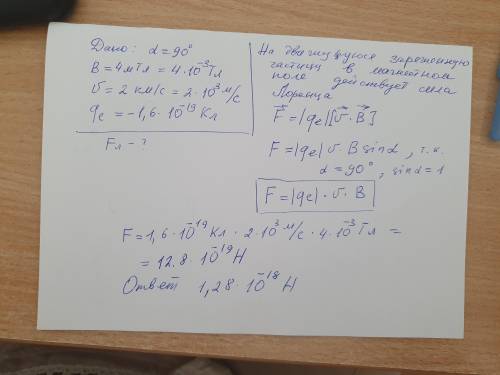 Дано: α = 90°
B = 4мТл = 4·10⁻³Тл
υ = 2 км/с = 2·10³м/с
qe = -1,6·10⁻¹⁹ Кл
Fл - ?
На движущуюся заряженную
частицу в магнитном
поле действует сила
Лоренца
F⃗ = |qe|[υ⃗·B⃗]
F = |qe| υ·B sinα, т.к.
α = 90°, sinα = 1
F = |qe|·υ·B
F = 1,6·10⁻¹⁹Кл · 2·10³м/с · 4·10⁻³Тл =
= 12.8·10⁻¹⁹Н
Ответ 1,28·10⁻¹⁸ Н